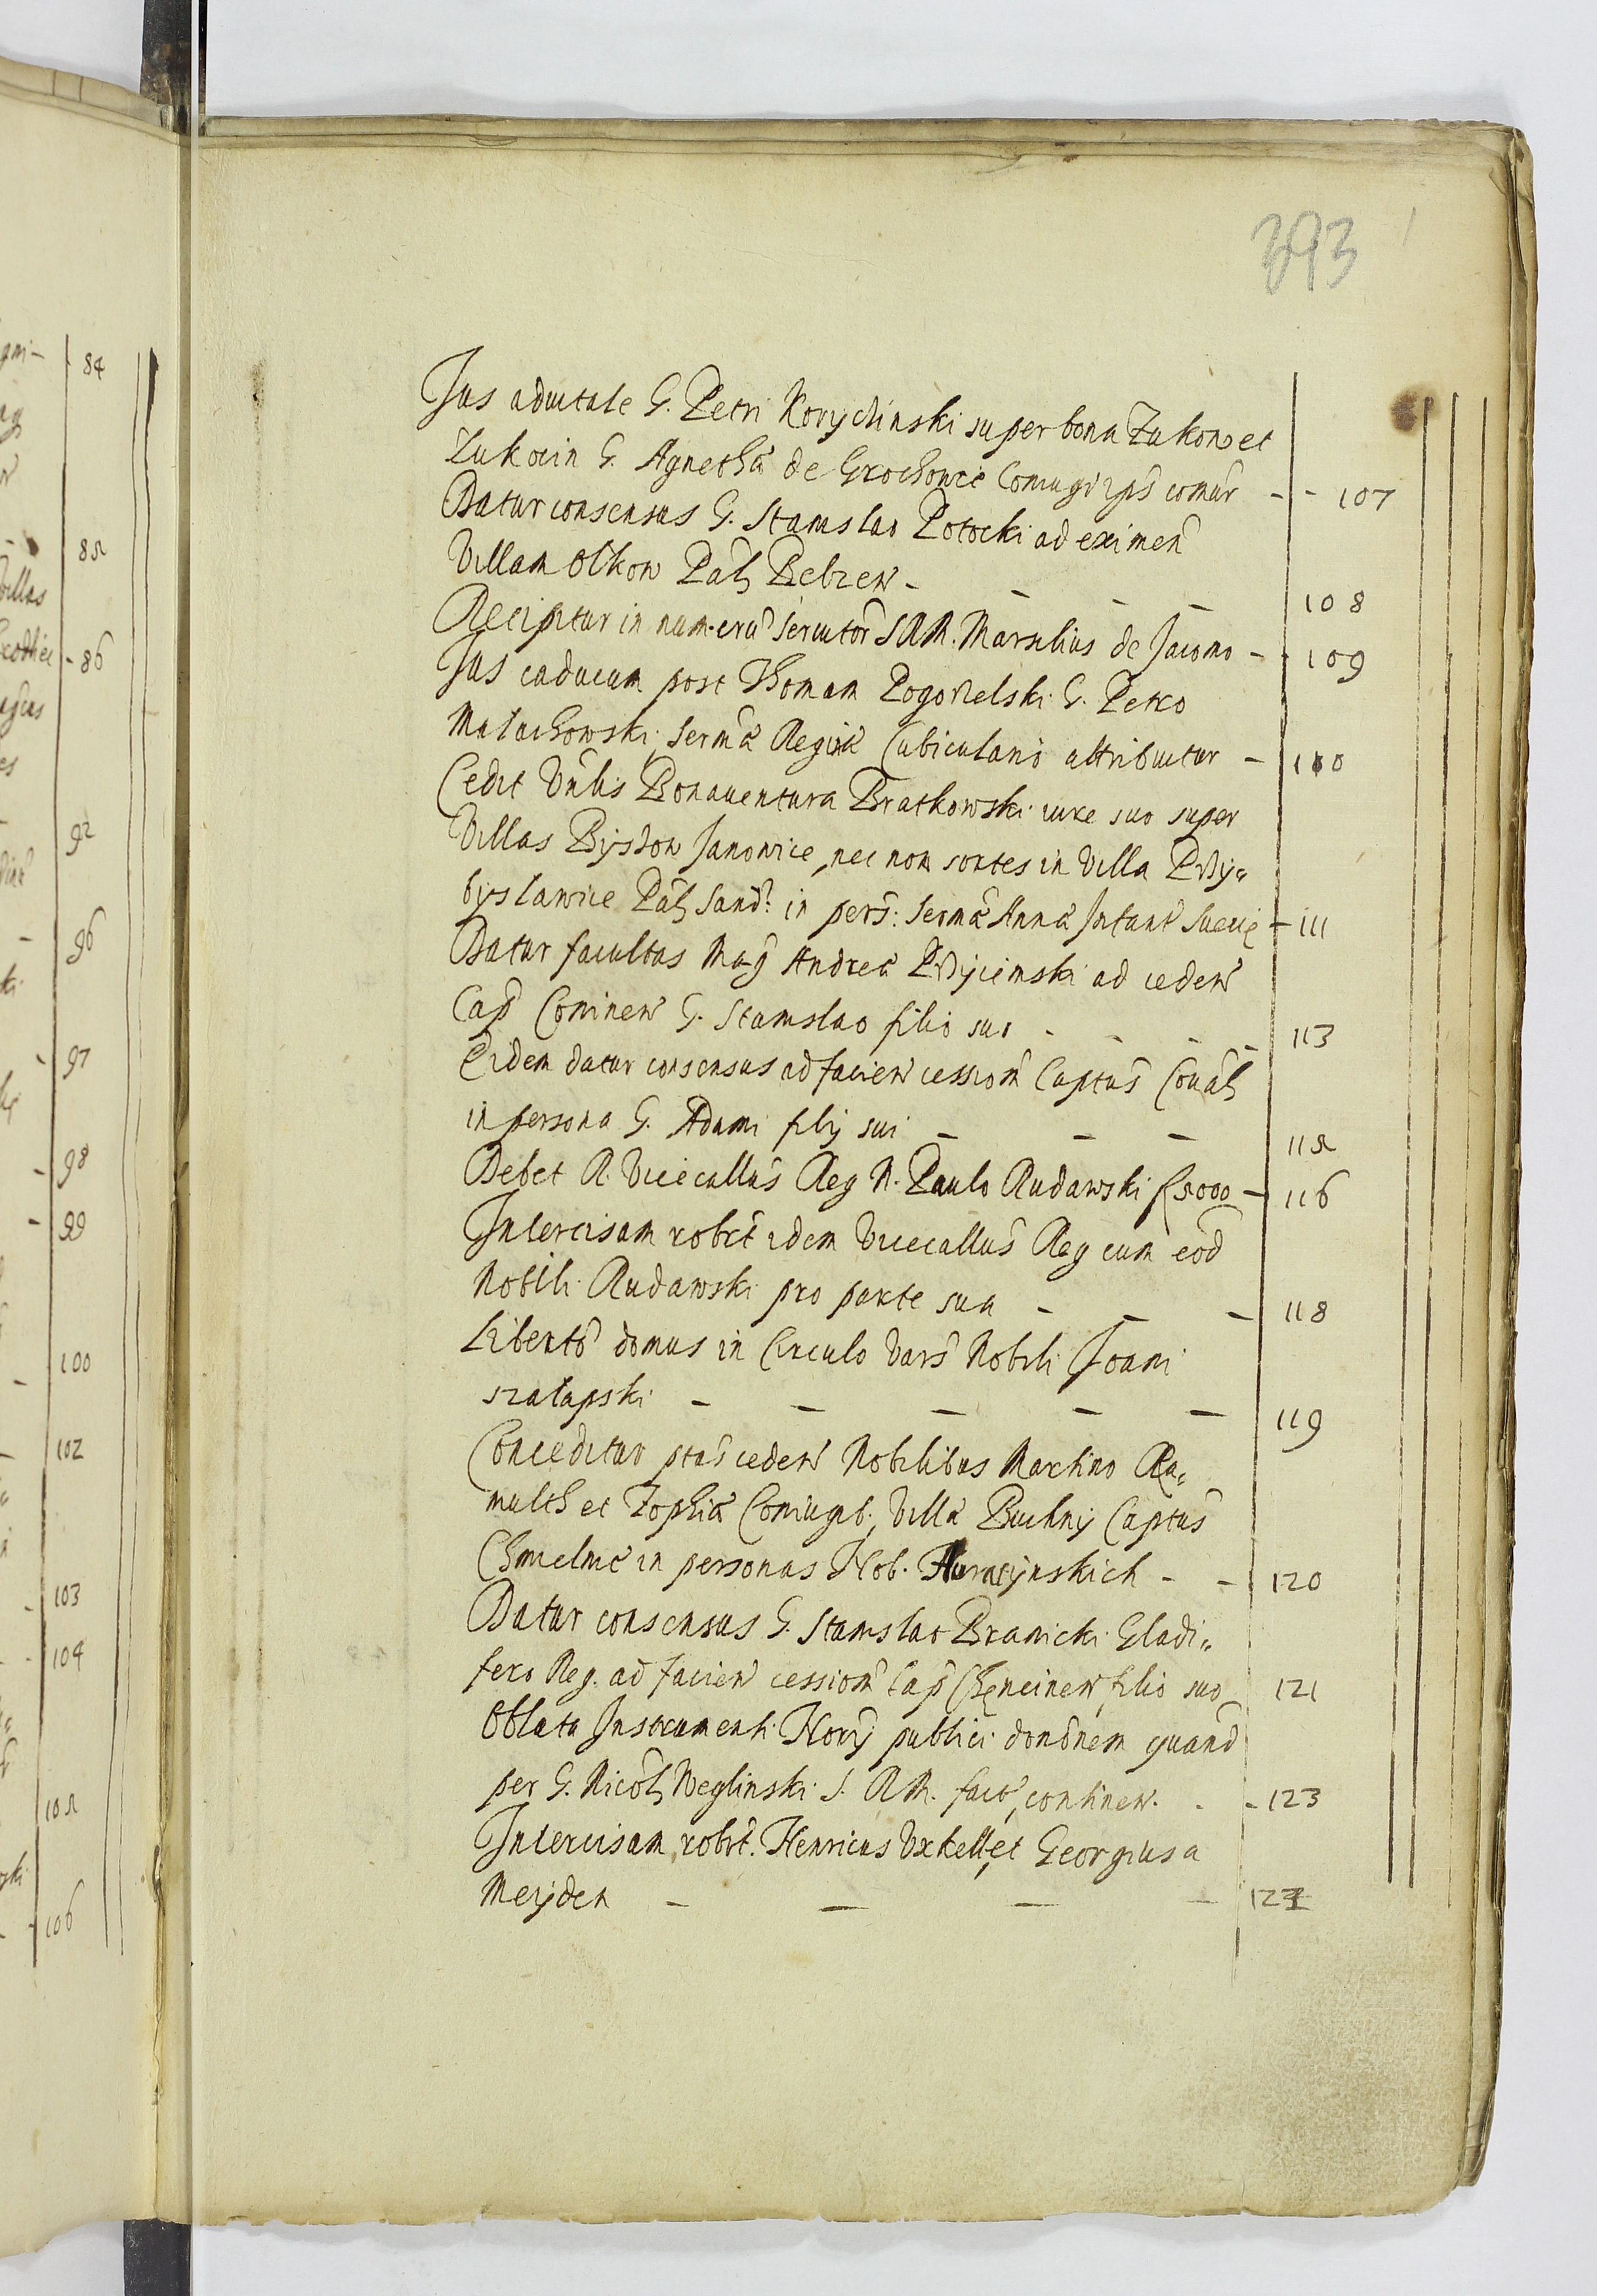 393
Jus aduitale G. Petri Koryciński super bona Zukow et
Zukocin G. Agnethæ de Grochowce Coniugi ips comūr - - 107
Datur consensus G. Stanislao Potocki ad eximen̄
Villam Olkow Palt̄ Belzen - - - - 108
Recipitur in numerū seruitor̄ SRM. Marsilius de Jacomo - 109
Jus caducum post Thomam Pogorzelski G. Petro
Malachowski Sermæ Reginæ Cubiculario attribuitur - 110
Cedit Vrlis Bonauentura Bratkowski iure suo super
Villas Bystow Janowice, nec non sortes in Villa Przy„
byslawice Palt̄ Sand: in pers̄: Sermæ Annæ Infant̄ Suecię - 111
Datur facultas Mag̃ Andreæ Przyiemski ad ceden̄
Cap̄ Coninen̄ G. Stanislao filio suo - - - - 113
Eidem datur consensus ad facien̄ cession̄ Captūs Coual̄
in persona G. Adami filij sui - - - 115
Debet R. Vicecallus̄ Reg N. Paulo Rudawski f 5000 - 116
Intercisam robr̄t idem Vicecallus̄ Reg cum eod̄
Nobili Rudawski pro parte sua - - - 118
Libertō domus in Circulo Vars̄ Nobili Joanni
Szalapski - - - - - 119
Conceditur ptas̄ ceden̄ Nobilibus Martino Ra„
multh et Zophiæ Coniugib: Villæ Buchny Captūs
Chmielnic̄ in personas Nob. Huracynskich - - 120
Datur consensus G. Stanislao Branicki Gladi„
fero Reg. ad facien̄ cession̄ Cap̄ Chęncinen̄, filio suo 121
Oblata Instrumenti Norij publici donōnem quand̄
per G. Nicol̄ Weglinski S. RM. fact̄, continen̄. - - 123
Intercisam, robr̄t. Henricus Vxkell, et Georgius a
Meyden - - - - 124
84
85
86
92
96
97
98
99
100
102
103
104
105
106